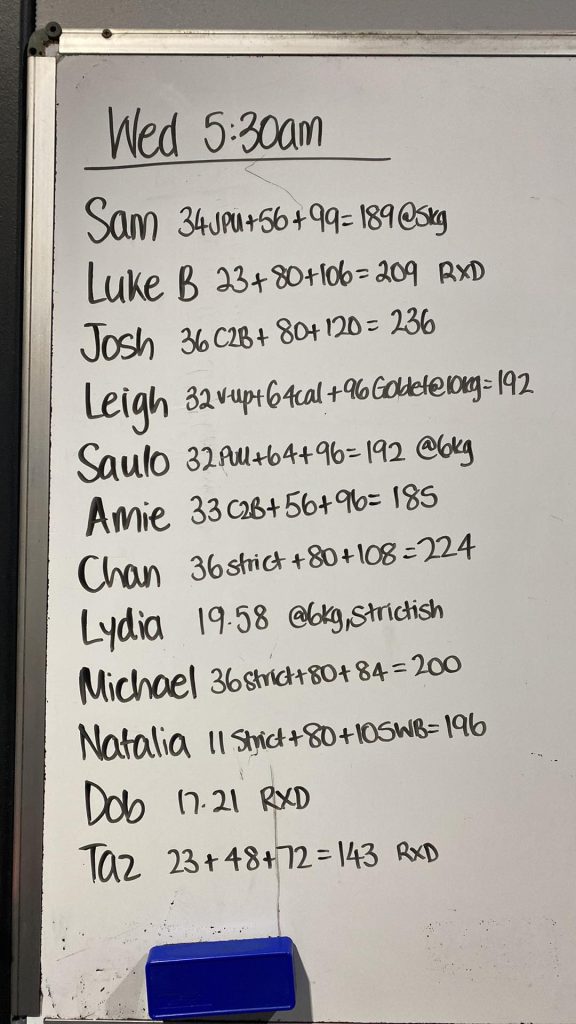 Wed 5:30am
Sam 34JPU+56+99=189@5kg
Luke B 23+80+106=209 RXD
Josh 36 C2B+80+120=236
Leigh 32 V-up+64cal+96Goblet@10kg=192
Saulo 32Pull+64+96=192 @6kg
Amie 33 C2B+56+96=185
Chan 36 strict+80+108=224
Lydia 19.58 @6kg, Strictish
Michael 36 Strict+80+84=200
Natalia 11 Strict+80+105WB=196
Dob 17.21 RXD
Taz 23+48+72=143 RXD